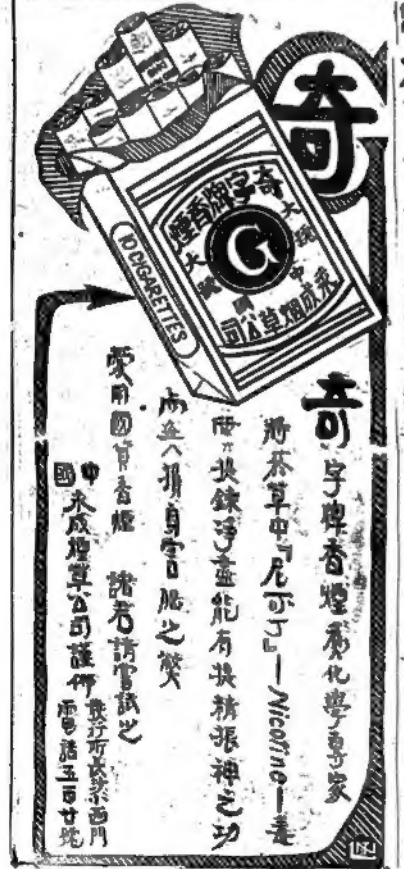 奇
奇字牌香煙
大號 中國 大號
G
永成烟草公司
10 CIGARETTES
奇字牌香煙聘化學專家
將菸草中『尼可丁』—Nicotine—毒
質提鍊淨盡能有提精振神之功
而無損身害腦之弊
愛用國貨香煙 諸君請嘗試之
中國永成煙草公司謹佈
發行所長業西門
電話五百廿號